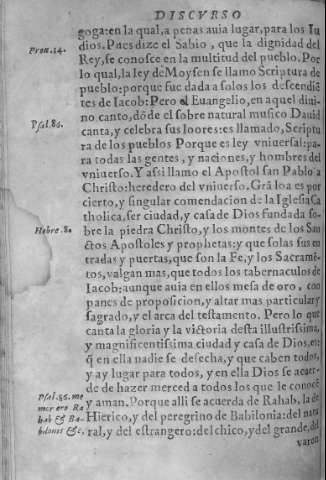 DISCVRSO
goga: en la qual, a penas auia lugar, para los Iu
dios. Pues dize el Sabio, que la dignidad del
Prou. 14.
Rey, se conosce en la multitud del pueblo. Por
lo qual, la ley de Moysen se llamo Scriptura de
pueblo: porque fue dada a solos los descendiē
tes de Iacob: Pero el Euangelio, en aquel diui-
no canto, dōde el sobre natural musico Dauid
Psal. 86.
canta, y celebra sus loores: es llamado, Scriptu
ra de los pueblos Porque es ley vniuersal: pa-
ra todas las gentes, y naciones, y hombres del
vniuerso. Y assi llamo el Apostol san Pablo a
Christo: heredero del vniuerso. Grā loa es por
cierto, y singular comendacion de la Iglesia Ca
tholica, ser ciudad, y casa de Dios fundada so-
Hebre. 8.
bre la piedra Christo, y los montes de los San
ctos Apostoles y prophetas: y que solas sus en
tradas y puertas, que son la Fe, y los Sacramē-
tos, valgan mas, que todos los tabernaculos de
Iacob: aunque auia en ellos mesa de oro, con
panes de proposicion, y altar mas particular y
sagrado, y el arca del testamento. Pero lo que
canta la gloria y la victoria desta illustrissima,
y magnificentissima ciudad y casa de Dios, es:
q̄ en ella nadie se desecha, y que caben todos,
y ay lugar para todos, y en ella Dios se acuer-
de de hazer merced a todos los que le conocē
Psal. 86. me
mor ero Ra
hab & Ba-
bilonis &c.
y aman. Porque alli se acuerda de Rahab, la de
Hierico, y del peregrino de Babilonia: del natu
ral, y del estrangero: del chico, y del grande, del
varon